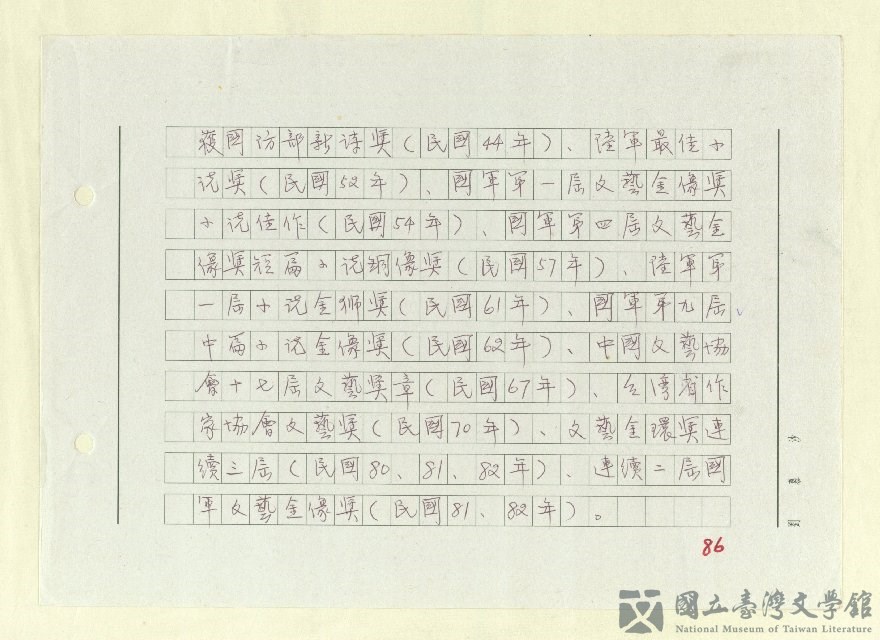 獲國防部新詩獎(民國44年)、陸軍最佳小
說獎(民國52年)、國軍第一屆文藝金像獎
小說佳作(民國54年)、國軍第四屆文藝金
像獎短篇小說銅像獎(民國57年)、陸軍第
一屆小說金獅獎(民國61年)、國軍第九屆
中篇小說金像獎(民國62年)、中國文藝協
會十七屆文藝獎章(民國67年)、台灣省作
家協會文藝獎(民國70年)、文藝金環獎連
續三屆(民國80、81、82年)、連續二屆國
軍文藝金像獎(民國81、82年)。
86
國立臺灣文學館
National Museum of Taiwan Literature